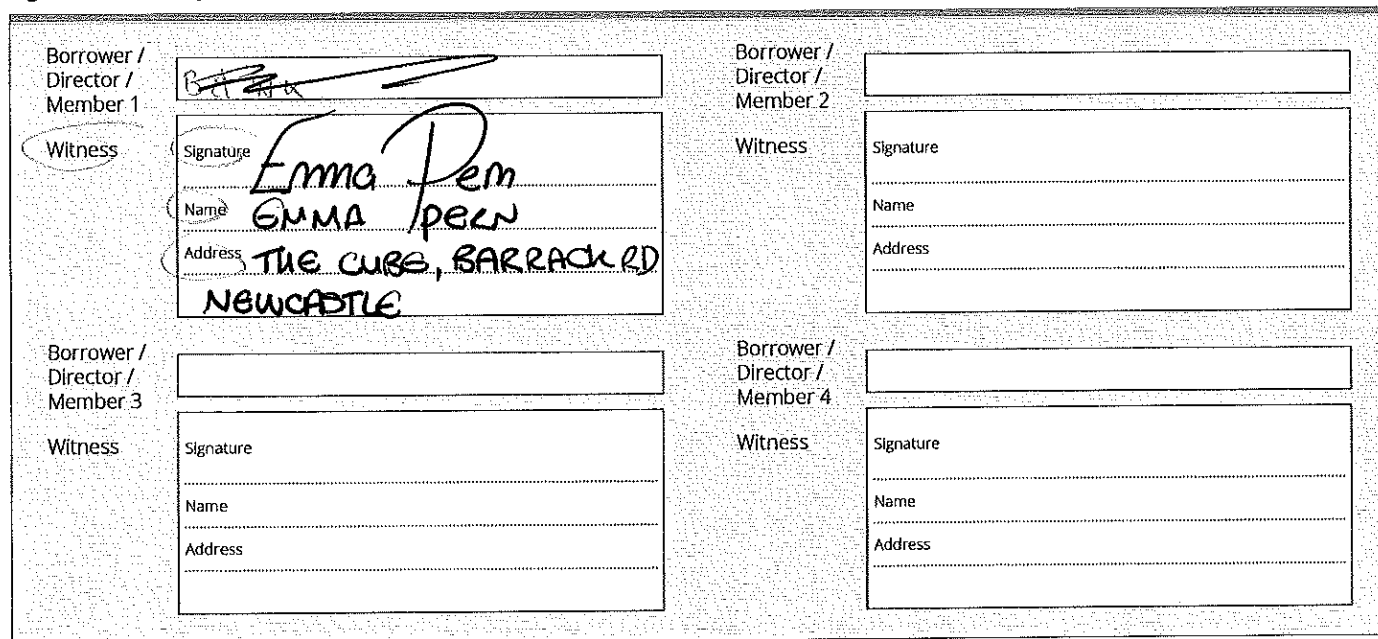 Borrower /
Director /
Member 1
Witness
Signature Emma Pern
Name EMMA PERN
Address THE CUBE, BARRACK RD
NEWCASTLE
Borrower /
Director /
Member 2
Witness
Signature
Name
Address
Borrower /
Director /
Member 3
Witness
Signature
Name
Address
Borrower /
Director /
Member 4
Witness
Signature
Name
Address